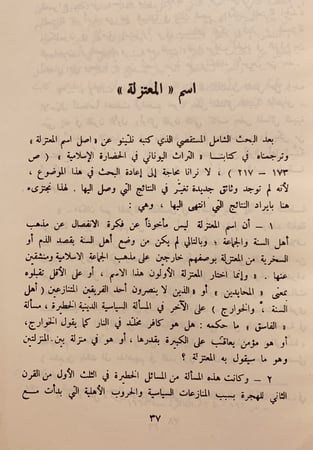 اسم « المعتزلة »
بعد البحث الشامل المستقصي الذي كتبه نلّينو عن « اصل اسم المعتزلة »
وترجمناه في كتابنـا « التراث اليوناني في الحضارة الإسلامية » ( ص
١٧٣ – ٢١٧ ) ، لا ترانا بحاجة إلى إعادة البحث في هذا الموضوع ،
لأنه لم توجد وثائق جديدة تغيّر في النتائج التي وصل اليها . لهذا نجتزىء
هنا بايراد النتائج التي انتهى اليها ، وهي :
١ – أن اسم المعتزلة ليس مأخوذاً عن فكرة الانفصال عن مذهب
أهل السنة والجماعة ؛ وبالتالي لم يكن من وضع أهل السنة بقصد الذم أو
السخرية من المعتزلة بوصفهم خارجين على مذهب الجماعة الاسلامية ومنشقين
عنها . « وإنما اختار المعتزلة الأولون هذا الاسم ، أو على الأقل تقبلوه
بمعنى « المحايدين » أو « الذين لا ينصرون أحد الفريقين المتنازعين ( أهل
السنة ، والخوارج ) على الآخر في المسألة السياسية الدينية الخطيرة ، مسألة
« الفاسق » ما حكمه : هل هو كافر مخلّد في النار كما يقول الخوارج ،
أو هو مؤمن يعاقب على الكبيرة بقدرها ، أو هو في منزلة بين المنزلتين
وهو ما سيقول به المعتزلة ؟
٢ – وكانت هذه المسألة من المسائل الخطيرة في الثلث الأول من القرن
الثاني للهجرة بسبب المنازعات السياسية والحروب الأهلية التي بدأت مع
٣٧